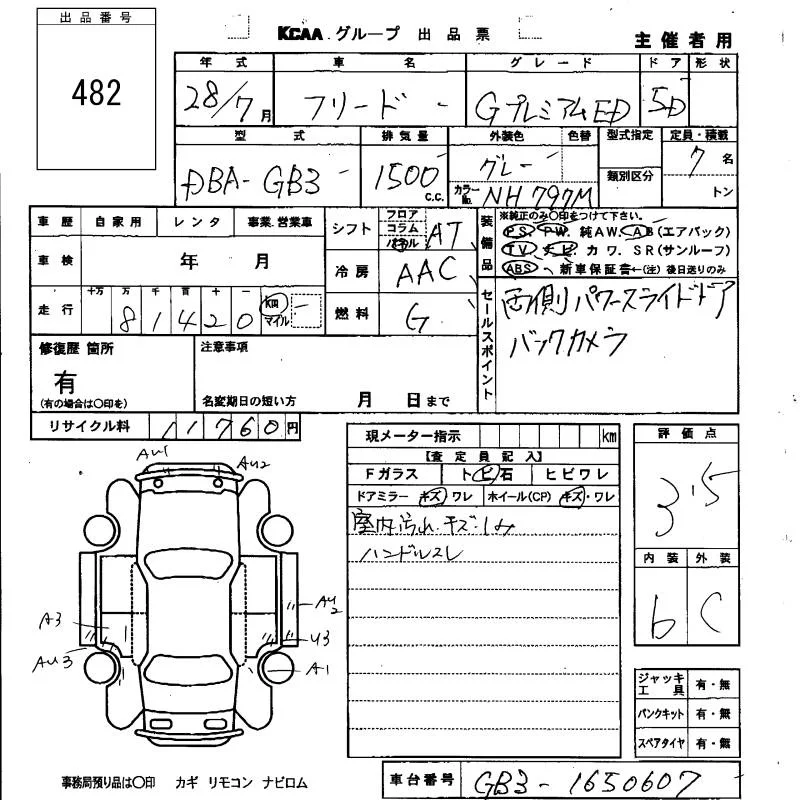 出品番号
482
KCAA グループ 出品票
主催者用
年式 車名 グレード ドア 形状
28/7月 フリード Gプレミアムエディ 5D
型式 排気量 外装色 色替 型式指定 定員・積載
DBA-GB3 1500 C.C. グレー 類別区分 7名
カラーNo. NH797M トン
車歴 自家用 レンタ 事業.営業車
シフト フロア コラム パネル AT
装備品 ※純正のみ〇印をつけて下さい。
PS. PW. 純AW. AB(エアバック)
TV. ナビ カワ. SR(サンルーフ)
ABS 新車保証書←(注)後日送りのみ
車検 年 月
冷房 AAC
走行 十万 万 千 百 十 一
81420 Km マイル
燃料 G
セールスポイント
両側パワースライドドア
バックカメラ
修復歴 箇所
有
(有の場合は〇印を)
注意事項
名変期日の短い方 月 日まで
リサイクル料 11760円
現メーター指示 km
【査定員記入】
Fガラス トビ石 ヒビワレ
ドアミラー キズ・ワレ ホイール(CP) キズ・ワレ
室内汚れ.キズ.シミ
ハンドルスレ
評価点
3.5
内装 外装
b C
AU1 AU2
A3
AU3
AU2
U3
A1
ジャッキ工具 有・無
パンクキット 有・無
スペアタイヤ 有・無
事務局預り品は〇印 カギ リモコン ナビロム
車台番号 GB3-1650607